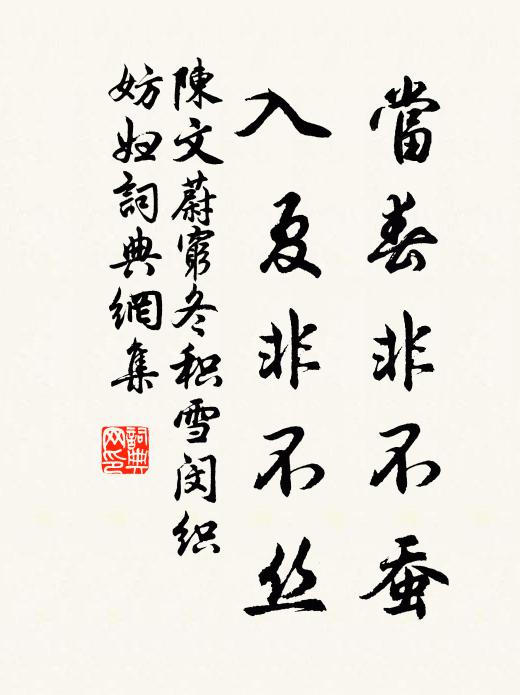 當春非不蚕
入夏非不丝
陳文蔚窮冬积雪闵织
妨妇詞典網集
詞典网印